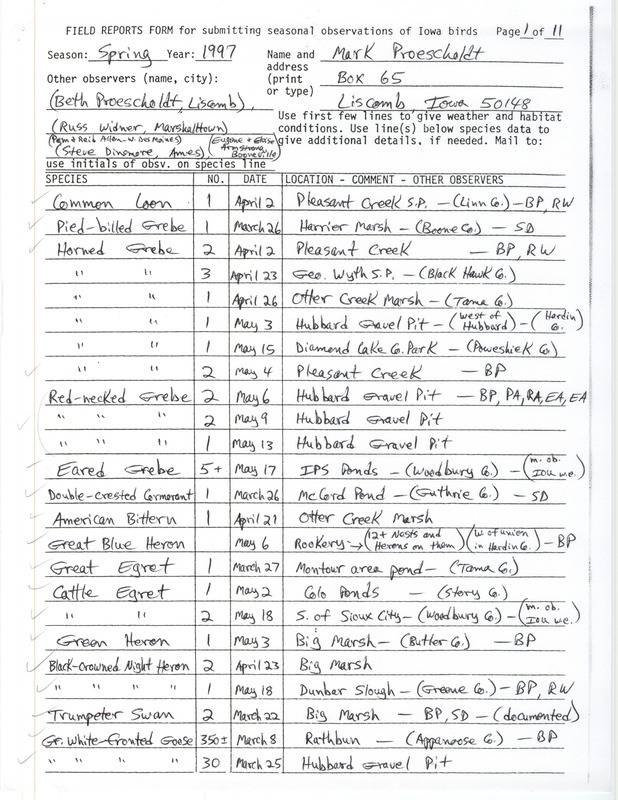 FIELD REPORTS FORM for submitting seasonal observations of Iowa birds Page 1 of 11
Season: Spring Year: 1997 Name and address (print or type) Mark Proescholdt
Box 65
Liscomb, Iowa 50148
Other observers (name, city):
(Beth Proescholdt, Liscomb),
(Russ Widner, Marshalltown)
(Pam & Reid Allen-W. Des Moines) (Eugene & Eloise Armstrong Booneville)
(Steve Dinsmore, Ames)
use initials of obsv. on species line
Use first few lines to give weather and habitat conditions. Use line(s) below species data to give additional details, if needed. Mail to:
SPECIES NO. DATE LOCATION - COMMENT - OTHER OBSERVERS
Common Loon 1 April 2 Pleasant Creek S.P. - (Linn Co.) - BP, RW
Pied-billed Grebe 1 March 26 Harrier Marsh - (Boone Co.) - SD
Horned Grebe 2 April 2 Pleasant Creek - BP, RW
" " 3 April 23 Geo. Wyth S.P. - (Black Hawk Co.)
" " 1 April 26 Otter Creek Marsh - (Tama Co.)
" " 1 May 3 Hubbard Gravel Pit - (west of Hubbard) - (Hardin Co.)
" " 1 May 15 Diamond Lake Co. Park - (Poweshiek Co.)
" " 2 May 4 Pleasant Creek - BP
Red-necked Grebe 2 May 6 Hubbard Gravel Pit - BP, PA, RA, EA, EA
" " 2 May 9 Hubbard Gravel Pit
" " 1 May 13 Hubbard Gravel Pit
Eared Grebe 5+ May 17 IPS Ponds - (Woodbury Co.) - (m. ob. IOU w.e.)
Double-crested Cormorant 1 March 26 McCord Pond - (Guthrie Co.) - SD
American Bittern 1 April 21 Otter Creek Marsh
Great Blue Heron May 6 Rookery → (12+ Nests and Herons on them) (W. of Union in Hardin Co.) - BP
Great Egret 1 March 27 Montour area pond - (Tama Co.)
Cattle Egret 1 May 2 Colo Ponds - (Story Co.)
" " 2 May 18 S. of Sioux City - (Woodbury Co.) - (m. ob. IOU w.e.)
Green Heron 1 May 3 Big Marsh - (Butler Co.) - BP
Black-Crowned Night Heron 2 April 23 Big Marsh
" " " " 1 May 18 Dunbar Slough - (Greene Co.) - BP, RW
Trumpeter Swan 2 March 22 Big Marsh - BP, SD - (documented)
Gr. White-Fronted Goose 350± March 8 Rathbun - (Appanoose Co.) - BP
" " " " 30 March 25 Hubbard Gravel Pit